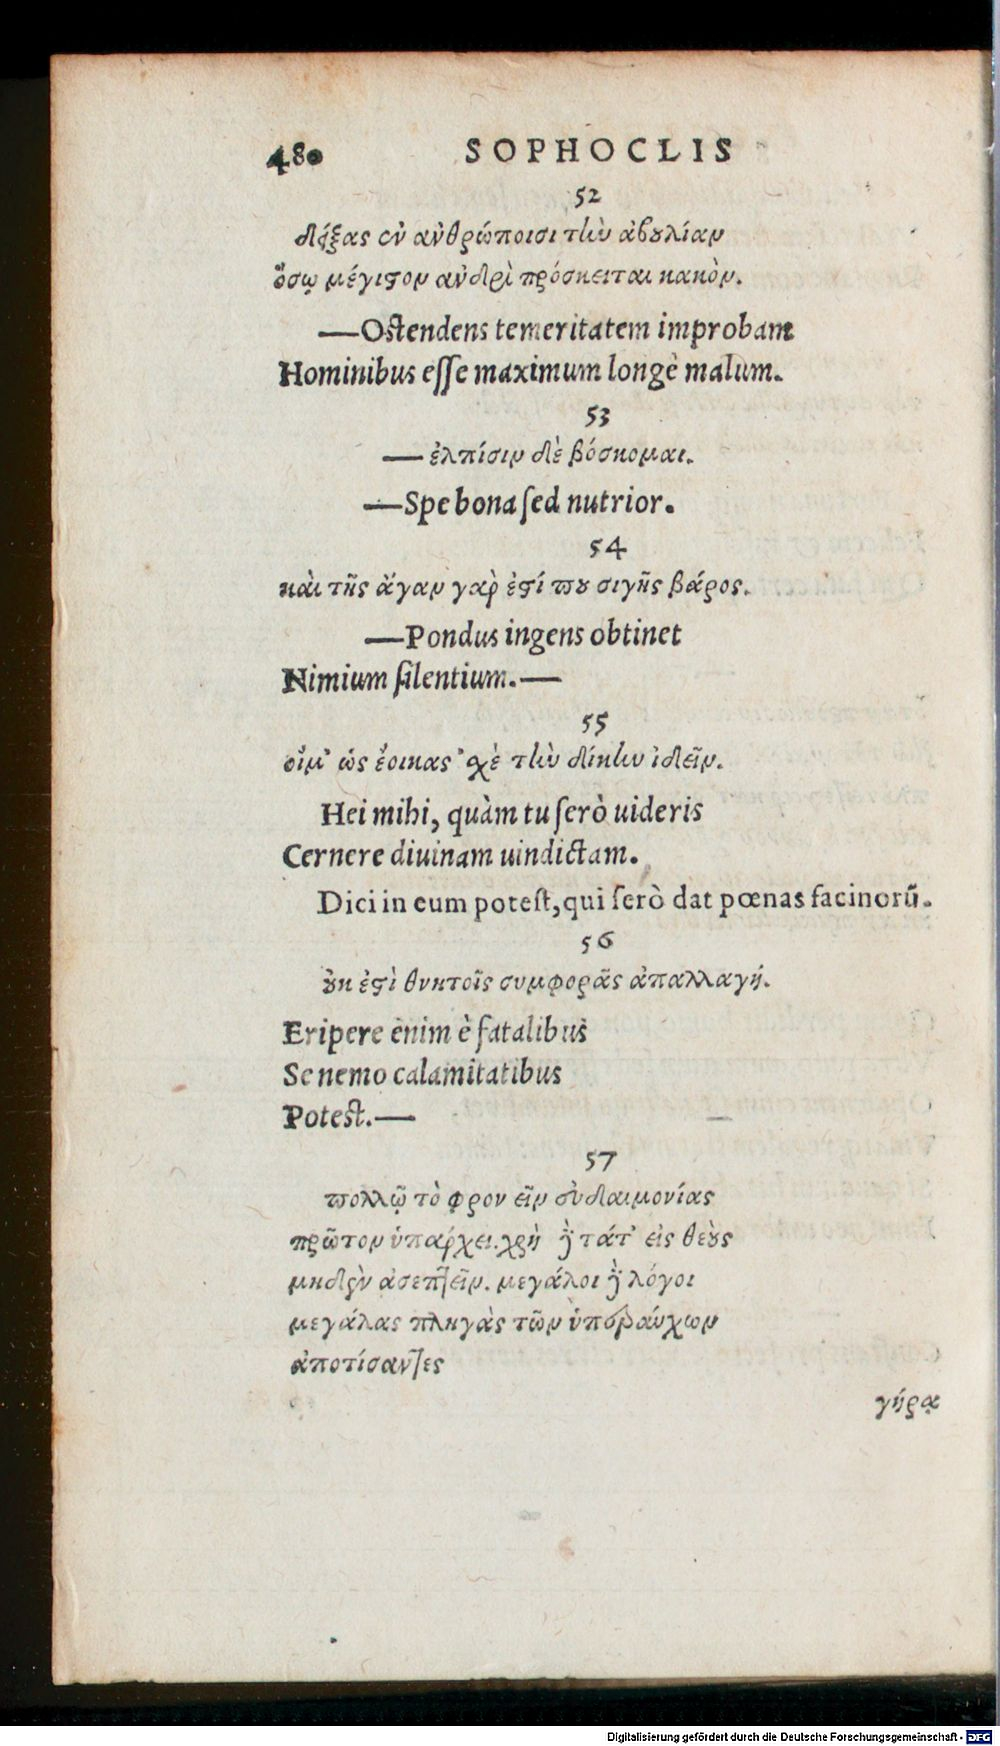 480 SOPHOCLIS
52
δείξας ἐν ἀνθρώποισι τὴν ἀβουλίαν
ὅσῳ μέγιστον ἀνδρὶ πρόσκειται κακὸν.
—Ostendens temeritatem improbam
Hominibus esse maximum longè malum.
53
— ἐλπίσιν δὲ βόσκομαι.
—Spe bona sed nutrior.
54
καὶ τῆς ἄγαν γὰρ ἐστί που σιγῆς βάρος.
—Pondus ingens obtinet
Nimium silentium.—
55
οἴμ' ὡς ἔοικας ὀχὲ τὴν δίκην ἰδεῖν.
Hei mihi, quàm tu serò uideris
Cernere diuinam uindictam.
Dici in eum potest, qui serò dat pœnas facinorū.
56
οὐκ ἐστὶ θνητοῖς συμφορᾶς ἀπαλλαγή.
Eripere enim è fatalibus
Se nemo calamitatibus
Potest.—
57
πολλῷ τὸ φρονεῖν εὐδαιμονίας
πρῶτον ὑπάρχει. χρὴ δὲ τάτ' εἰς θεοὺς
μηδὲν ἀσεπτεῖν. μεγάλοι δὲ λόγοι
μεγάλας πληγὰς τῶν ὑπεραύχων
ἀποτίσαντες
γήρᾳ
Digitalisierung gefördert durch die Deutsche Forschungsgemeinschaft - DFG